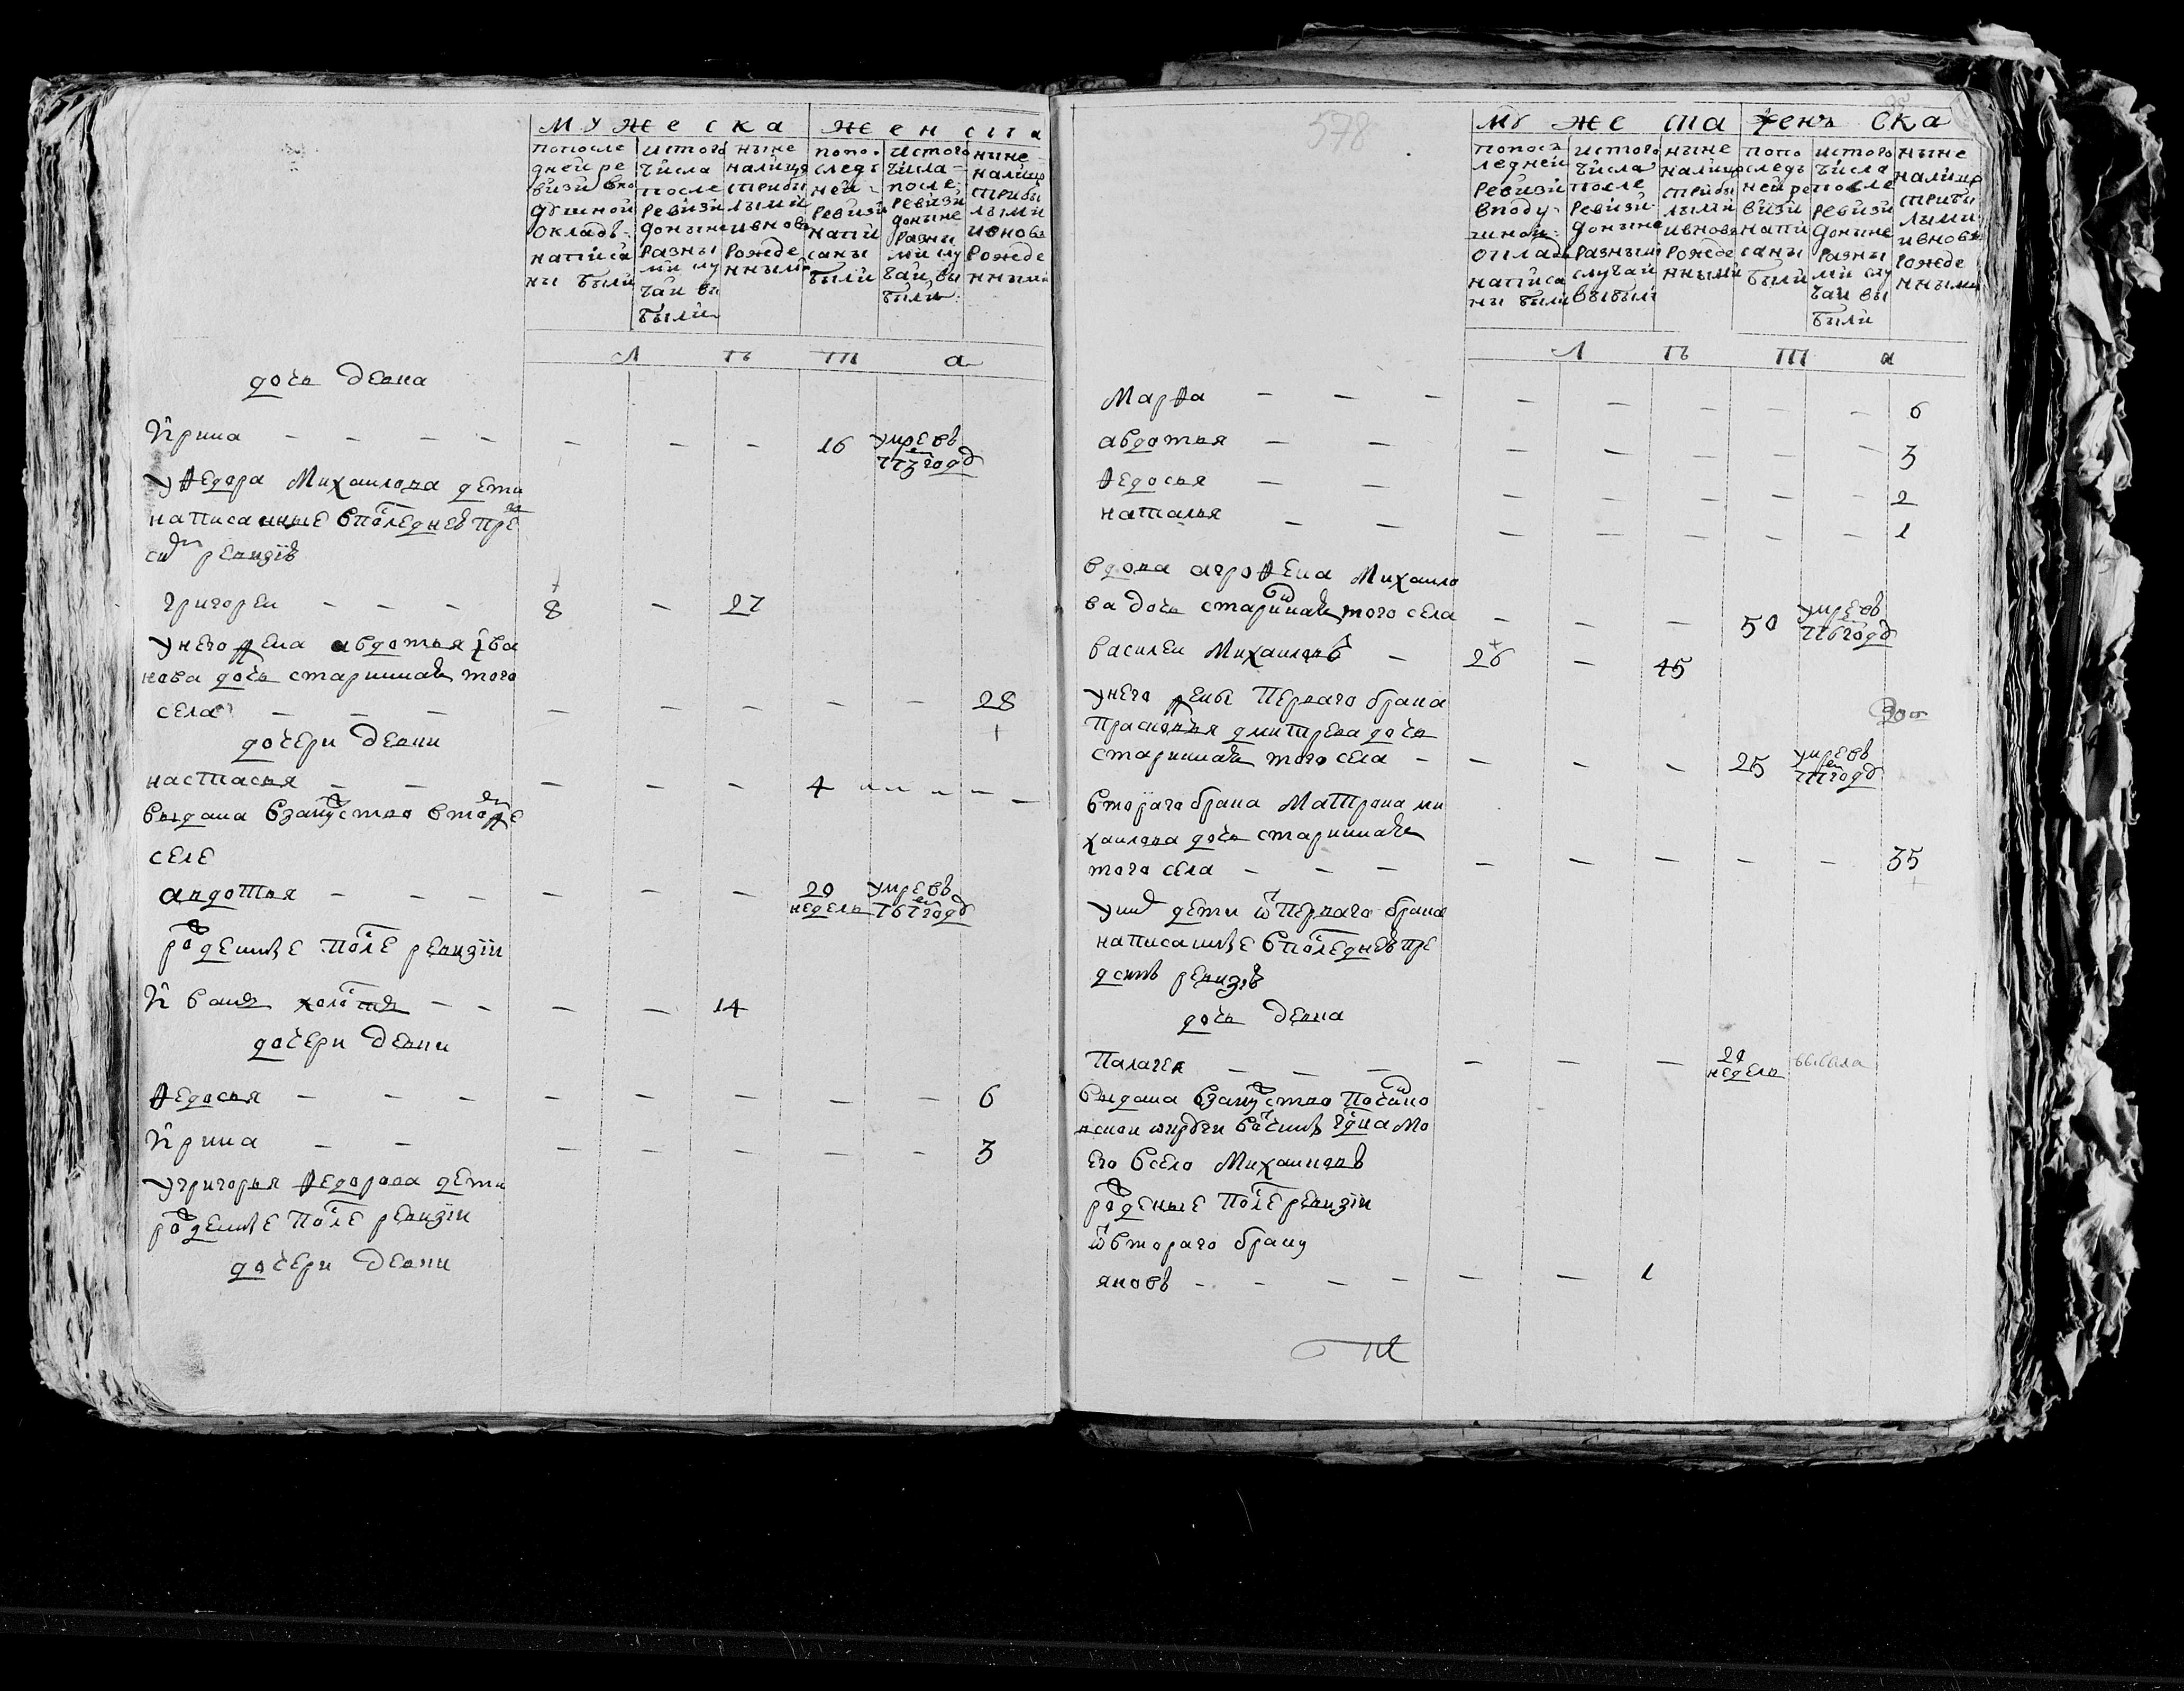 мужеска женска
попоследней ревизи вподушной окладъ написаны были
истого числа после ревизи доныне разными случаи выбыли
ныне налицо сприбылыми ивновь рожденными
попоследней ревизи написаны были
истого числа после ревизи доныне разными случаи выбыли
ныне налицо сприбылыми ивновь рожденными
лѣта
дочь девка
Ирина — — — — — — — 16 умре въ 773м годѣ
Уѳедора Михаилова дети
написанные впоследнеи пре
сей ревизiи
григореи — — — 8 — 27
Унего жена авдотья ива
нова дочь старинная того
села — — — — — — — — 28
дочери девки
настасья — — — — — — 4 — — — —
выдана взамужство втомже
селе
авдотья — — — — — — — 20 недель умре въ 767м годѣ
рожденные после ревизiи
Иванъ холостъ — — — — 14
дочери девки
ѳедосья — — — — — — — — — 6
Ирина — — — — — — — — 3
Угригорья ѳедорова дети
рожденные после ревизiи
дочери девки
578
мужеска женъска
попоследней ревизи вподушной окладъ написаны были
истого числа после ревизи доныне разными случаи выбыли
ныне налицо сприбылыми ивновь рожденными
попоследъней ревизи написаны были
истого числа после ревизи доныне разными случаи выбыли
ныне налицо сприбылыми ивновь рожденными
лѣта
Марѳа — — — — — — — — 6
авдотья — — — — — — — — 3
ѳедосья — — — — — — — — 2
наталья — — — — — — — 1
вдова агроѳена Михаило
ва дочь старинная того села — — — 50 умре въ 776м годѣ
василеи Михаиловъ — 26 — 45
унего жены перваго брака
прасковья дмитрева дочь
старинная того села — — — — 25 умре въ 777м годѣ
втораго брака Матрена ми
хаилова дочь старинная
того села — — — — — — — — 35
Унихъ дети отперваго брака
написанные впоследнеи пре
д симъ ревизiи
дочь девка
Палагея — — — — — — 24 недель выбыла
выдана взамужство
его всело Михаиловъ
рожденые после ревизiи
отвтораго браку
яковъ — — — — — — 1